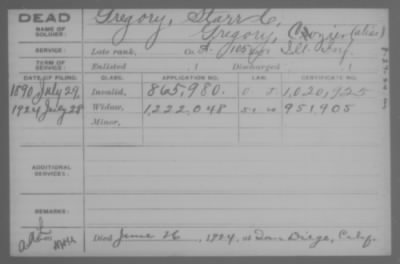 DEAD
NAME OF SOLDIER:
Gregory, Starr C.
Gregory, (alias)
SERVICE:
Late rank, Co. A, 105 Reg't Ill. Inf.
TERM OF SERVICE:
Enlisted , 1 Discharged , 1
DATE OF FILING. CLASS. APPLICATION NO. LAW. CERTIFICATE NO.
1890 July 29 Invalid, 865,980. 1,020,925
1924 July 28 Widow, 1,222,048 951,905
Minor,
ADDITIONAL SERVICES:
REMARKS:
Died June 26, 1924, at San Diego, Calif.